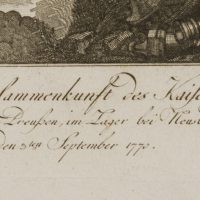 sammenkunft des Kais
Preußen, im Lager bei Neus
den 3ten September 1770.